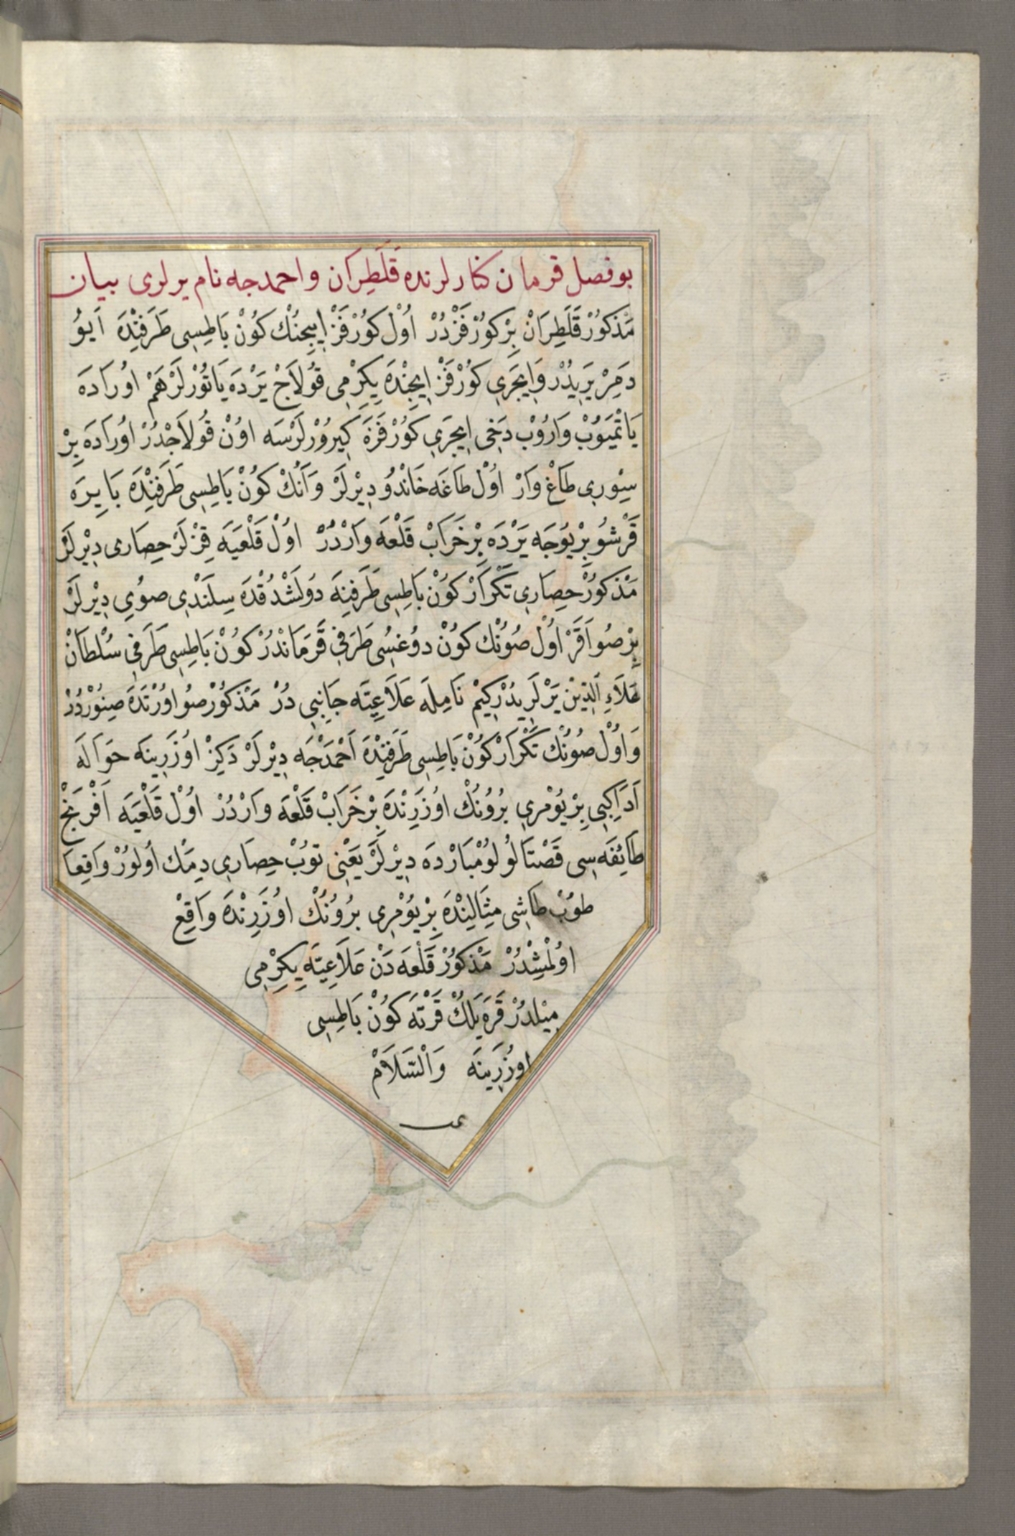 بو فصل قرمان كنارلرنده قَلَطِرَان و احمدجه نام يرلرى بيان
مَذكوُرْ قَلَطِرَانْ بِرْ كوُرْفَزْدُرْ اوُلْ كوُرْفَزْ اِيچِنُكْ كوُنْ بَاطِسِى طَرَفِنْدَه اَيوُ
دَمِرْ يَرِيدُرْ وَاِيچَرِى كوُرْفَزْ اِيچِنْدَه يِكِرْمِى قوُلاَجْ يَرْدَه يَاتوُرْلَرْ هَمْ اوُرَادَه
يَاتْمَيوُبْ وَارُوبْ دَخِى اِيچَرِى كوُرْفَزَه كِيروُرْلَرْسَه اوُنْ قوُلاَجْدُرْ اوُرَادَه بِرْ
سِوْرِى طَاغْ وَارْ اوُلْ طَاغَه خَانْدوُ دِيْرلَرْ وَ اَنُكْ كوُنْ بَاطِسِى طَرَفِنْدَه بَا يِرَه
قَرْشوُ بِرْ يوُجَه يَرْدَه بِرْ خَرَابْ قَلْعَه وَارْدُرْ اوُلْ قَلْعَيَه قِزْلَرْ حِصَارى دِيْرلَرْ
مَذْكوُرْ حِصَارِى تَكْرَارْ كوُنْ بَاطِسِى طَرَفِنَه دوُلَشْدُقْدَه سِلَنْدِى صوُيِى دِيْرلَرْ
بِرْ صوُ اَقَرْ اوُلْ صوُنُكْ كوُنْ دوُغسُى طَرَفِى قَرَمَانْدُرْ كوُنْ بَاطِسِى طَرَفِى سُلْطَانْ
عَلاَءِ الَدِينْ يَرْلَرِيدُرْ كِيمْ نَامِلَه عَلاَءِيَّه جَانِبِى دُرْ مَذْكوُرْ صوُ اوُرْتَدَه صِنوُرْدُرْ
وَاوُلْ صوُنُكْ تَكْرَارْ كوُنْ بَاطِسِى طَرَفِنْدَه اَحْمَدْجَه دِيْرلَرْ دَكِزْ اوُزَرِينَه حَوَالَه
اَدَا كِبِى بِرْ يوُمْرِى بُروُنُكْ اوُزَرِنْدَه بِرْ خَرَابْ قَلْعَه وَارْدُرْ اوُلْ قَلْعَيَه اَفْرَنْجْ
طَائِفَه سِى قَسْتَا لوُ لوُمْبَارْدَه دِيْرلَرْ يَعْنِى توُبْ حِصَارِى دِمَك اوُلوُرْ وَاقِعَا
طوُبْ طَاشِى مِثَالِينْدَه بِرْ يوُمْرِى بُروُنُكْ اوُزَرِنْدَه وَاقِعْ
اوُلْمُشْدُرْ مَذْكوُرْ قَلْعَه دَنْ عَلاَءِيَّه يِكِرْمِى
مِيْلدُرْ قَرَه يَلُكْ قَرْتَه كوُنْ بَاطِسِى
اوُزَرِينَه وَالْسَّلاَمْ